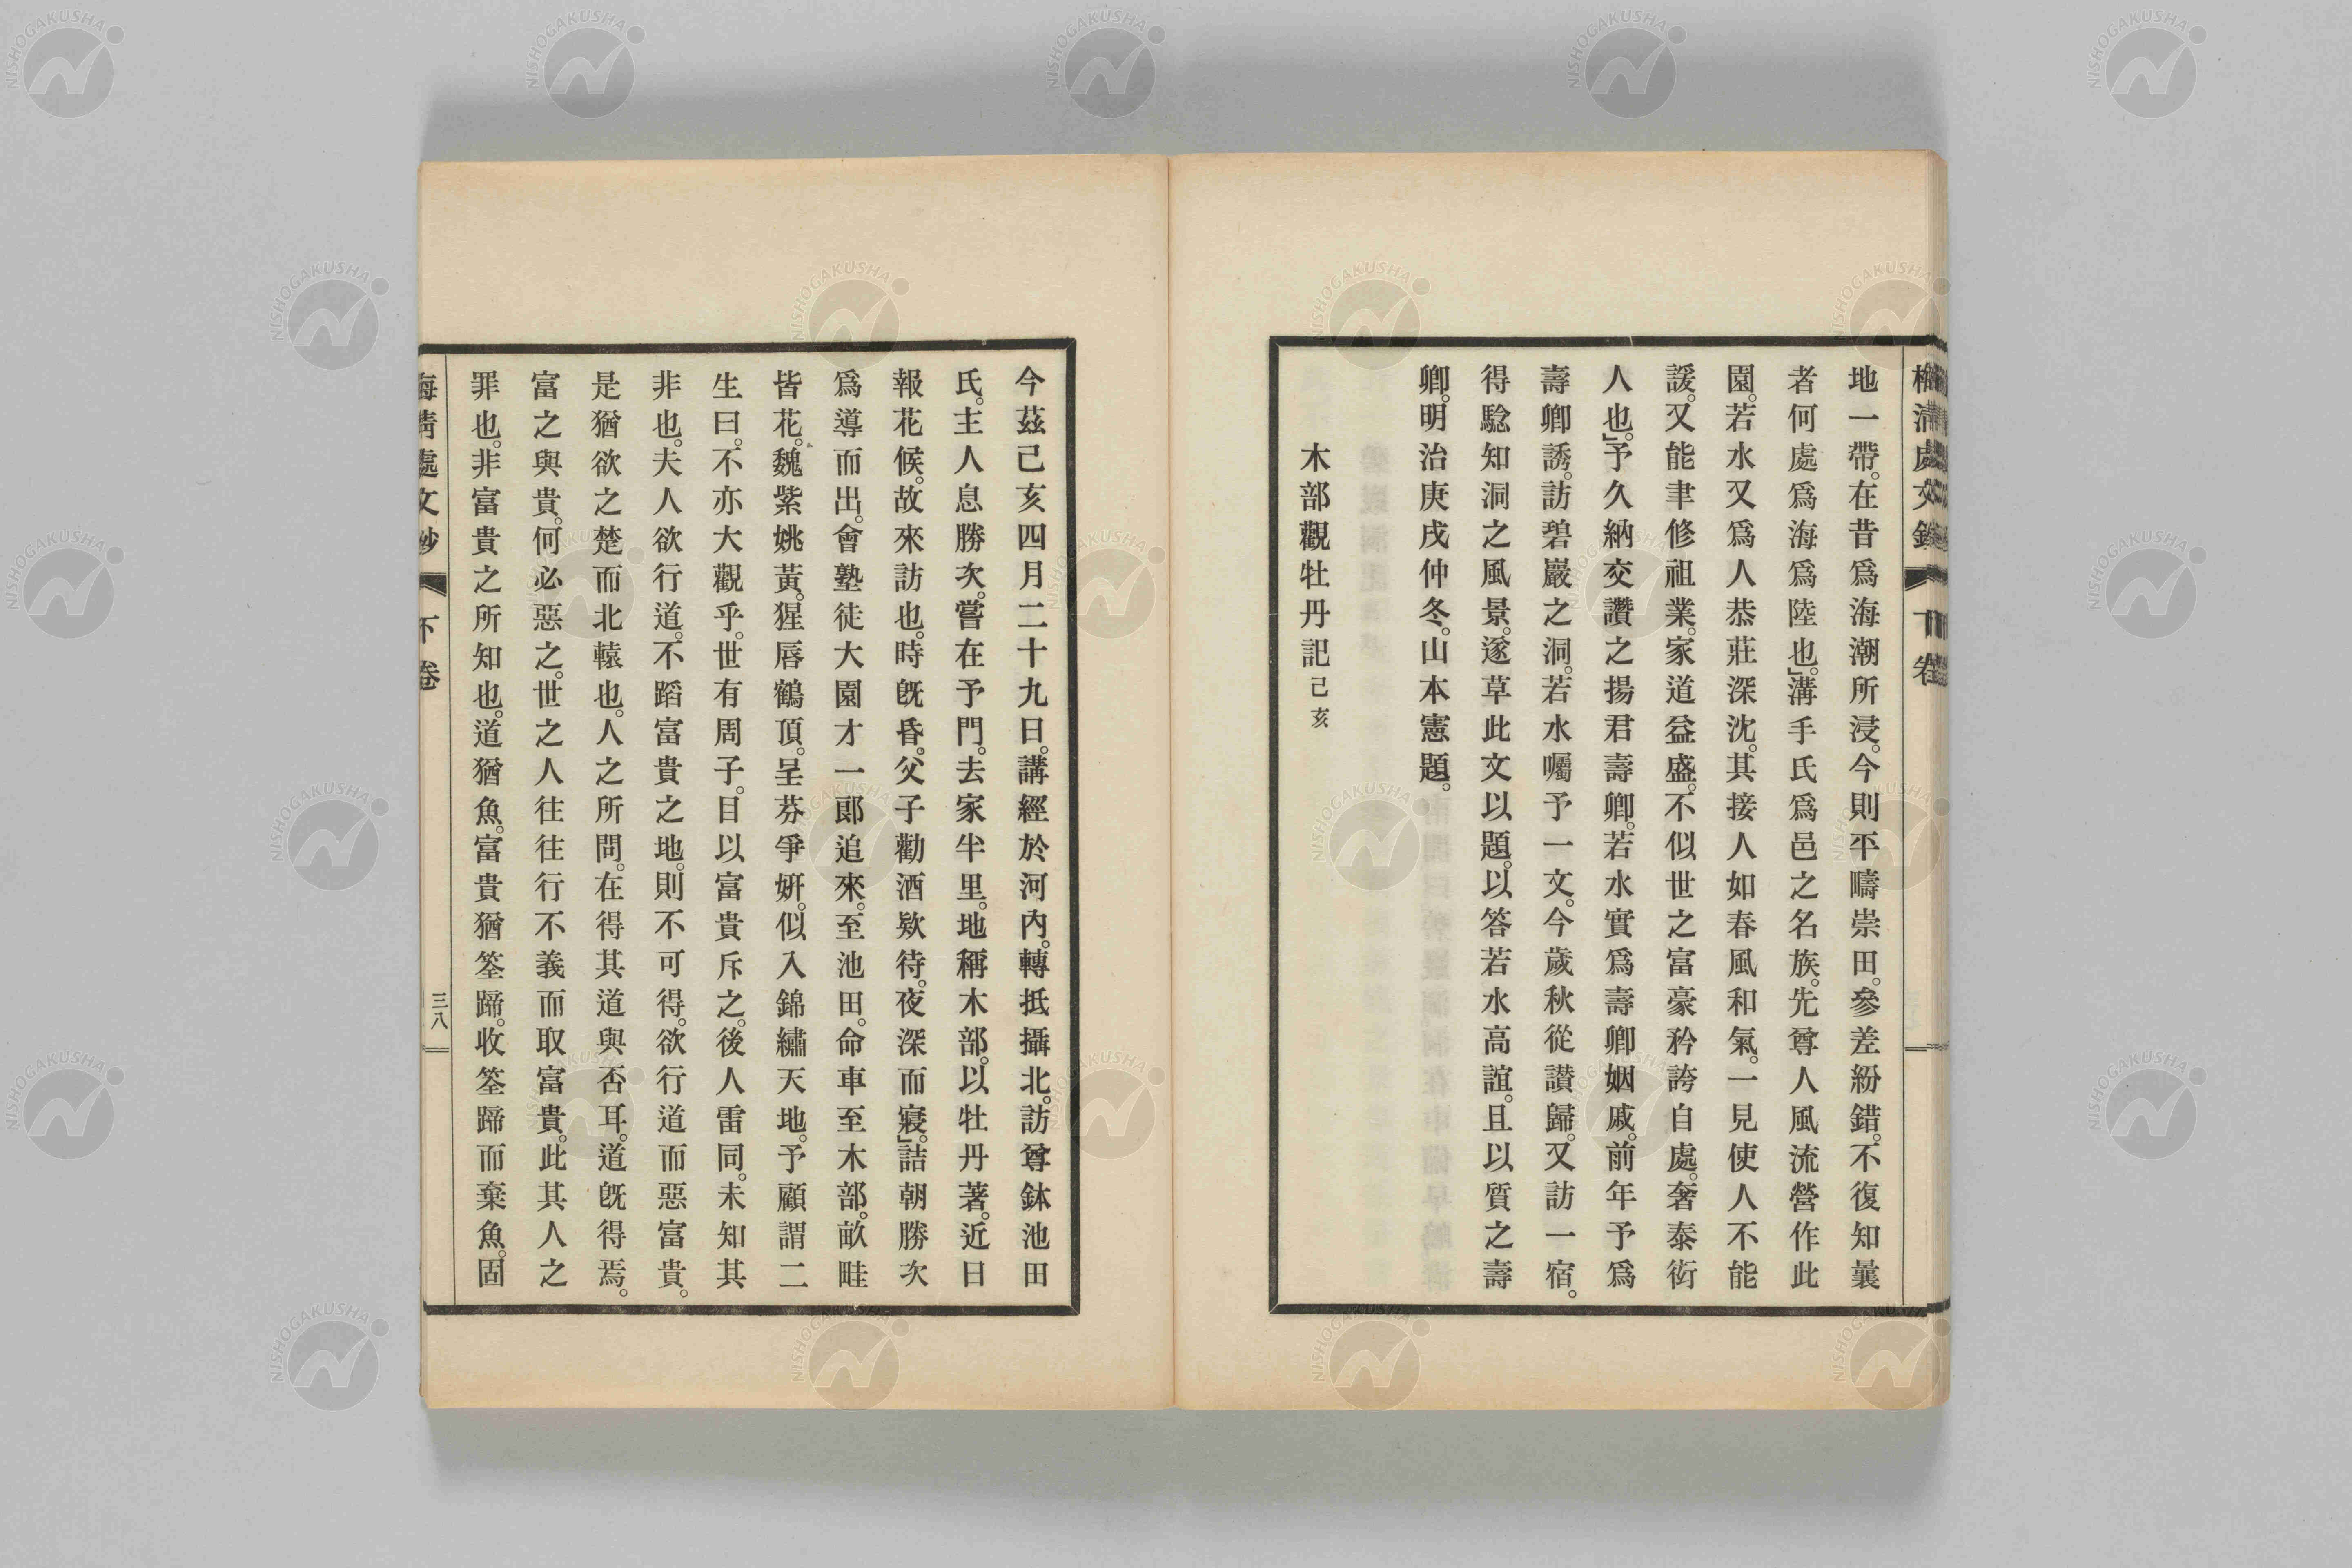 地一帶。在昔爲海潮所浸。今則平疇崇田。參差紛錯。不復知曩
者何處爲海爲陸也。」溝手氏爲邑之名族。先尊人風流營作此
園。若水又爲人恭莊深沈。其接人如春風和氣。一見使人不能
諼。又能聿修祖業。家道益盛。不似世之富豪矜誇自處。奢泰衒
人也。」予久納交讚之揚君壽卿。若水實爲壽卿姻戚。前年予爲
壽卿誘。訪碧巖之洞。若水囑予一文。今歲秋從讃歸。又訪一宿。
得騐知洞之風景。遂草此文以題。以答若水高誼。且以質之壽
卿。明治庚戌仲冬。山本憲題。
木部觀牡丹記己亥
今茲己亥四月二十九日。講經於河內。轉抵攝北。訪尊鉢池田
氏。主人息勝次。嘗在予門。去家半里。地稱木部。以牡丹著。近日
報花候。故來訪也。時旣昏。父子勸酒欵待。夜深而寢。」詰朝勝次
爲導而出。會塾徒大園才一郞追來。至池田。命車至木部。畝畦
皆花。魏紫姚黃。猩唇鶴頂。呈芬爭姸。似入錦繡天地。予顧謂二
生曰。不亦大觀乎。世有周子。目以富貴斥之。後人雷同。未知其
非也。夫人欲行道。不蹈富貴之地。則不可得。欲行道而惡富貴。
是猶欲之楚而北轅也。人之所問。在得其道與否耳。道旣得焉。
富之與貴。何必惡之。世之人往往行不義而取富貴。此其人之
罪也。非富貴之所知也。道猶魚。富貴猶筌蹄。收筌蹄而棄魚。固
梅淸處文鈔 下卷 三八